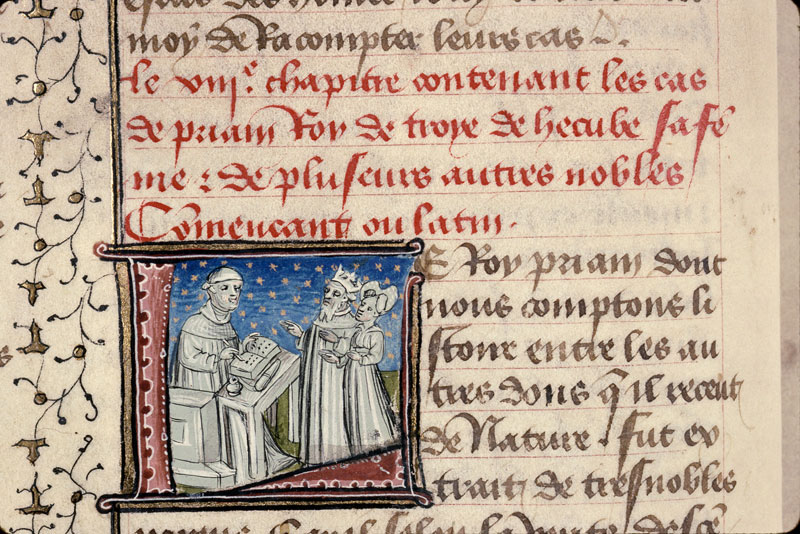 moy de Racompter leurs cas
le viii.e chapitre contenant les cas
de priam Roy de troye de hecube sa fẽ
me ⁊ de pluseurs autres nobles
Cõmencant ou latin.
LE Roy priam dont
nous comptons li
stoire entre les au
tres dons q̃ il receut
de Nature. fut ex
trait de tresnobles